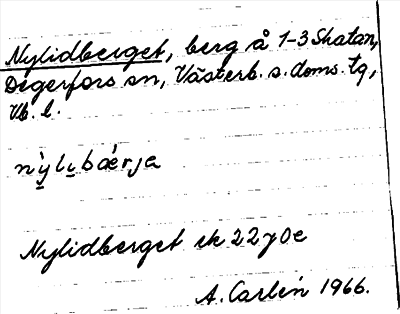 Nylidberget, berg å 1-3 Skatan,
Degerfors sn, Västerb. s. doms. tg,
Vb. l.
nỳ̲lι̲bǽrja
Nylidberget ek 22 7 0e
A. Carlén 1966.